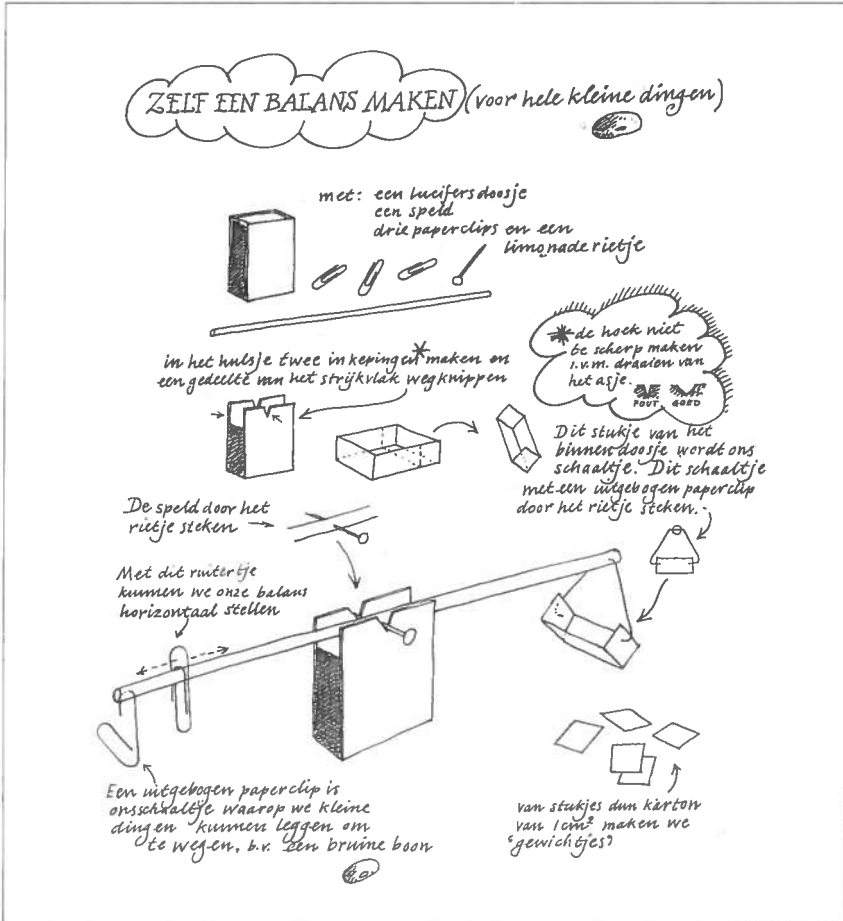 ZELF EEN BALANS MAKEN (voor hele kleine dingen)
met: een lucifersdoosje
een speld
drie paperclips en een
limonade rietje
in het hulsje twee inkepingen* maken en
een gedeelte van het strijkvlak wegknippen
* de hoek niet
te scherp maken
i.v.m. draaien van
het asje.
FOUT GOED
Dit stukje van het
binnendoosje wordt ons
schaaltje. Dit schaaltje
met een uitgebogen paperclip
door het rietje steken.
De speld door het
rietje steken
Met dit ruitertje
kunnen we onze balans
horizontaal stellen
Een uitgebogen paperclip is
ons schaaltje waarop we kleine
dingen kunnen leggen om
te wegen, b.v. een bruine boon
van stukjes dun karton
van 1cm² maken we
'gewichtjes'